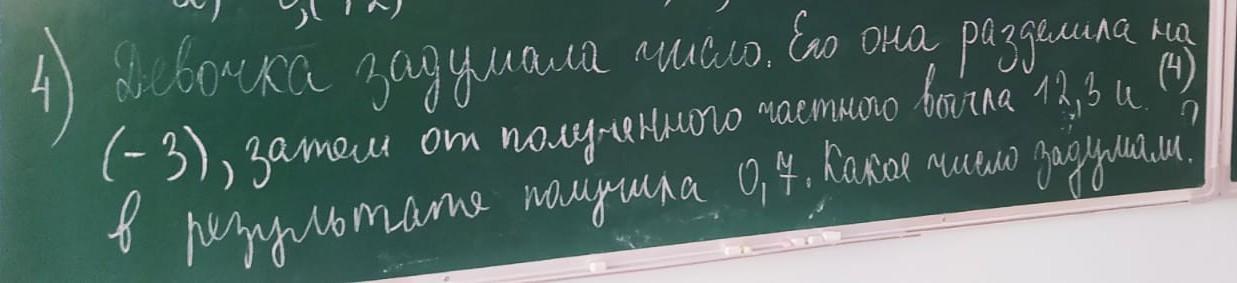 4) Девочка задумала число. Его она разделила на
(-3), затем от полученного частного вычла 12,3 и (4)
в результате получила 0,7. Какое число задумали?